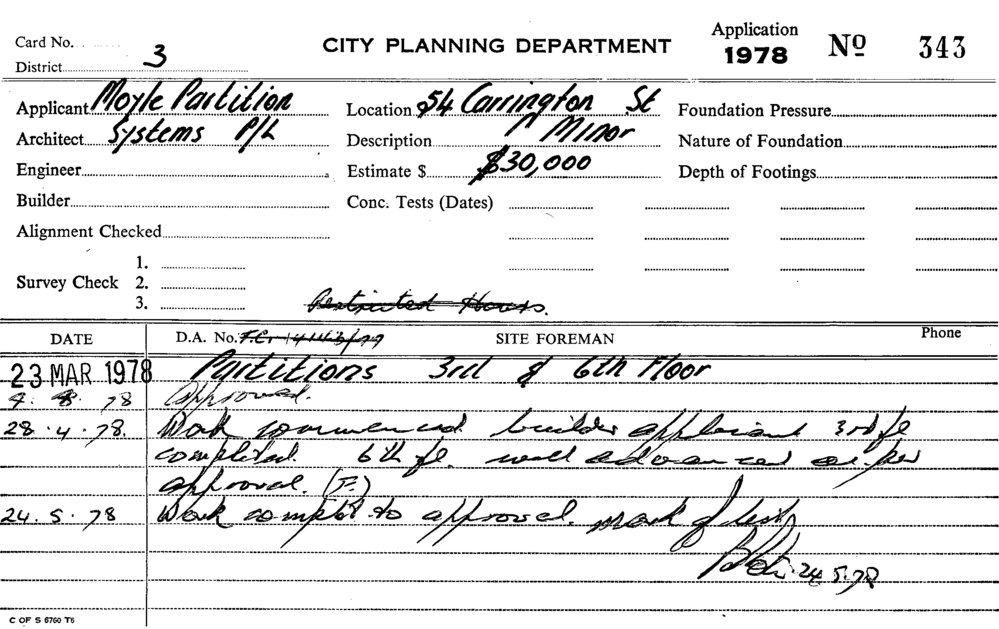 Card No. 3 CITY PLANNING DEPARTMENT Application 1978 Nº 343
District
Applicant Moyle Partition Location 54 Carrington St Foundation Pressure
Architect Systems P/L Description Minor Nature of Foundation
Engineer Estimate $ $30,000 Depth of Footings
Builder Conc. Tests (Dates)
Alignment Checked
1.
Survey Check 2.
3. Restricted Hours.
DATE D.A. No. SITE FOREMAN Phone
23 MAR 1978 Partitions 3rd & 6th Floor
4. 78 approved.
28.4.78. Work commenced builder applicant 3rd fl
completed. 6th fl. well advanced as per
approval. (F.)
24.5.78 Work complet to approval. mark off list
24.5.78
C OF S 6760 T6